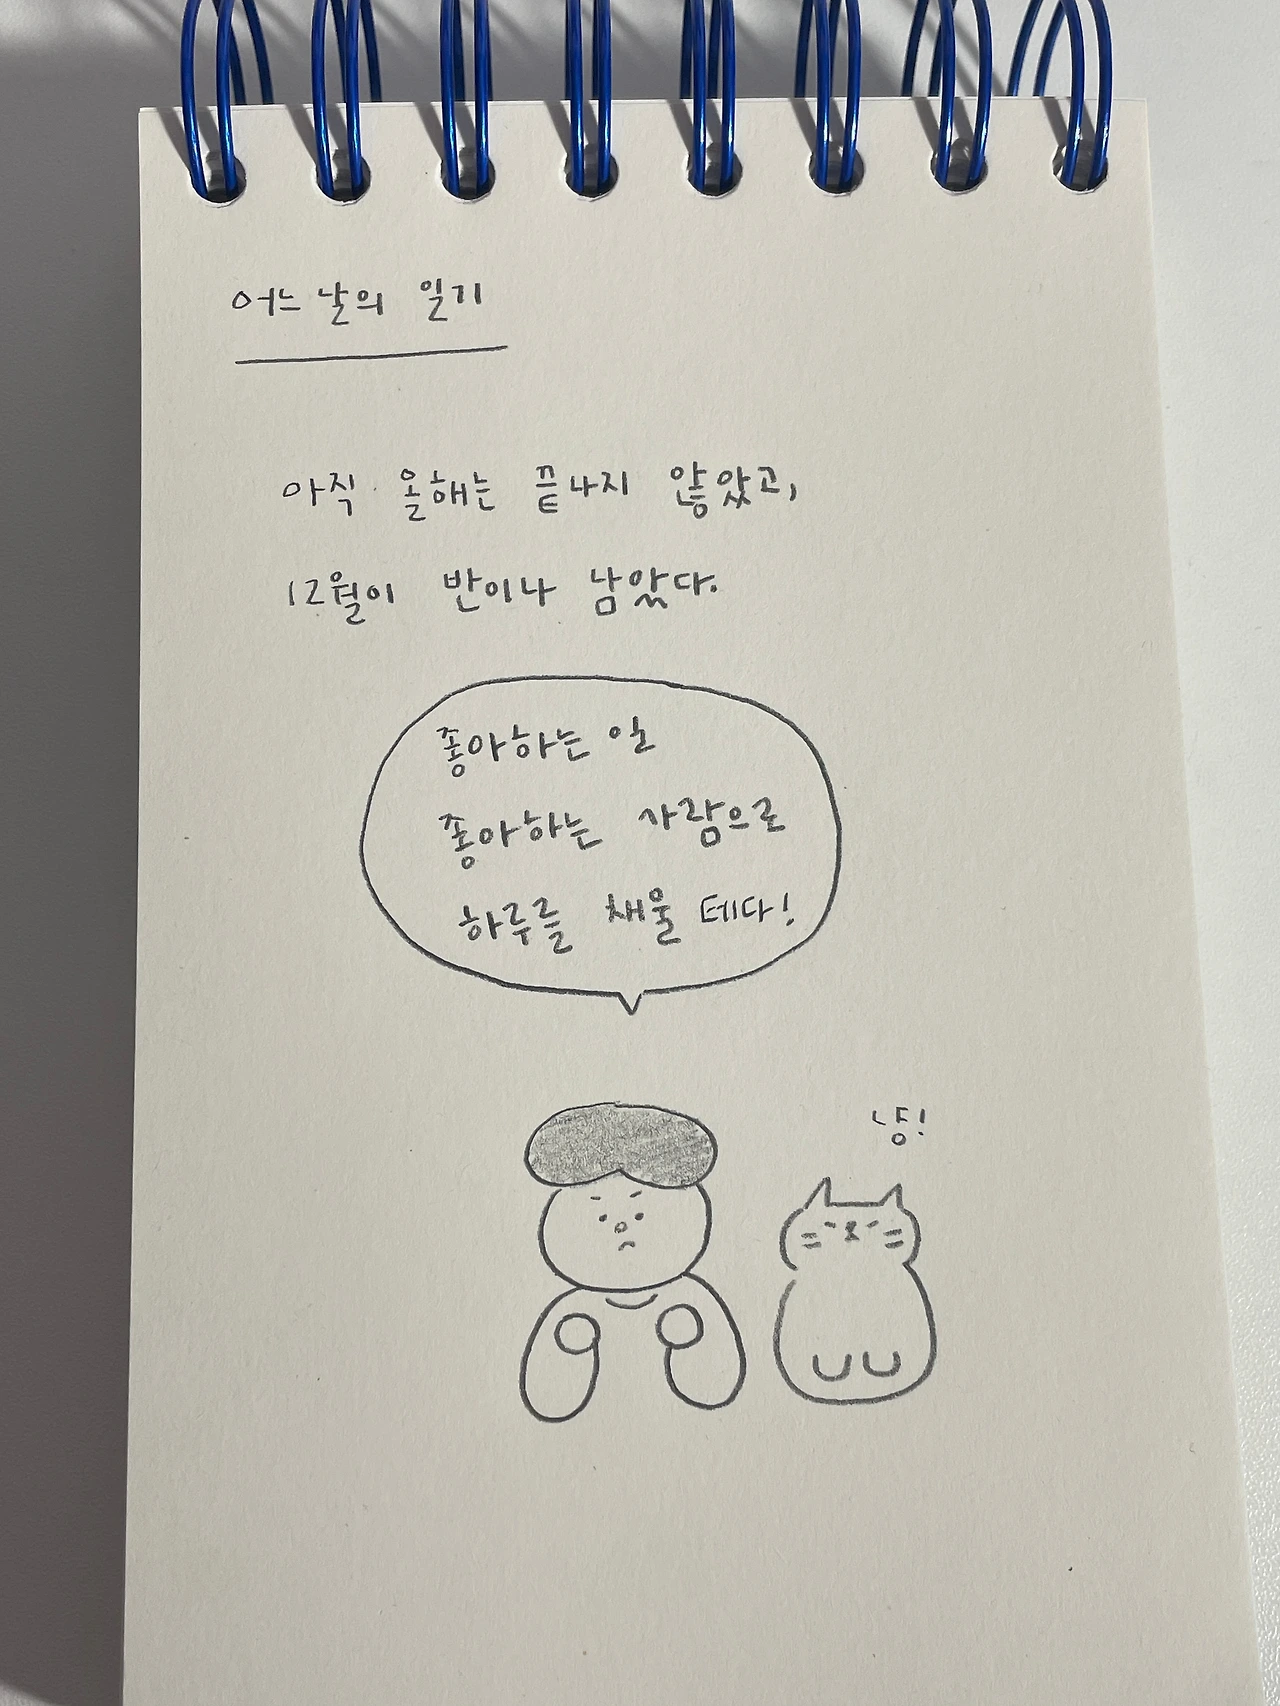 어느 날의 일기
아직 올해는 끝나지 않았고,
12월이 반이나 남았다.
좋아하는 일
좋아하는 사람으로
하루를 채울 테다!
냥!